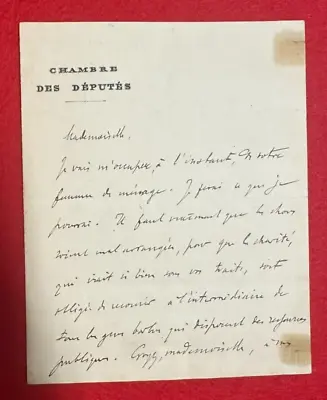 CHAMBRE
DES DÉPUTÉS
Mademoiselle,
Je vais m'occuper, à l'instant, de votre
femme de ménage. Je ferai ce que je
pourrai. Il faut vraiment que les choses
soient mal arrangées, pour que la charité,
qui vient si bien sous vos traits, soit
obligée de recourir à l'intermédiaire de
tous les gens qui disposent des ressources
publiques. Croyez, mademoiselle, à mes